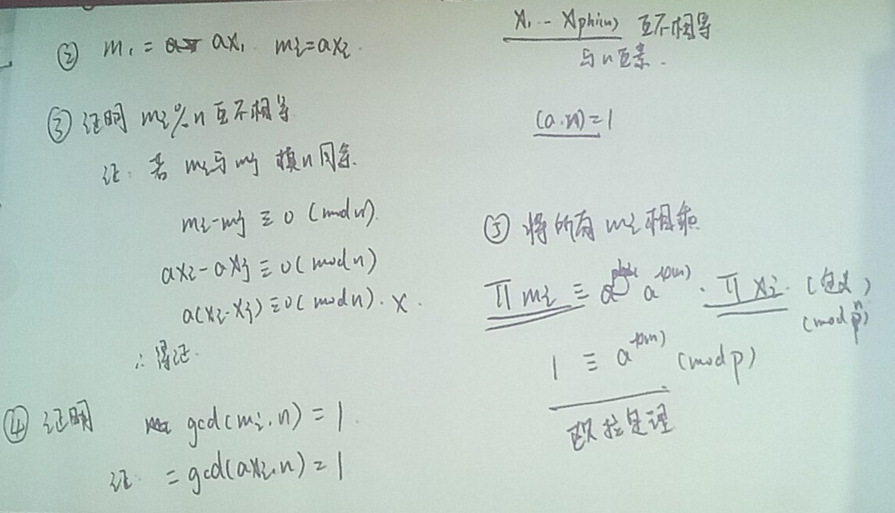 ② m₁ = ax₁. mi=axi.
③ 证明 mi%n 互不相等
证: 若 mi与mj 模n同余.
mi-mj ≡ 0 (mod n).
axi-axj ≡ 0 (mod n)
a(xi-xj) ≡ 0 (mod n). ×.
∴ 得证.
④ 证明 gcd(mi,n) = 1
证 = gcd(axi,n) = 1
x₁ … xphi(n) 互不相等
与n互素.
(a.n)=1
⑤ 将所有 mi 相乘
∏ mi ≡ a · ∏ xi. (
(mod n)
1 ≡ a (mod p)
欧拉定理